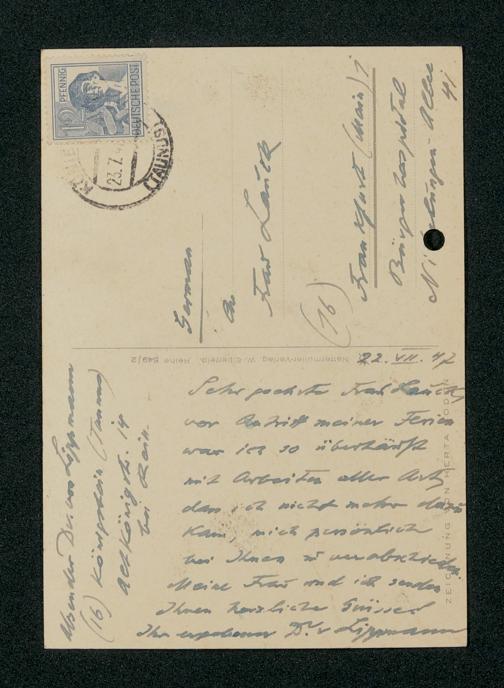 12 PFENNIG
DEUTSCHE POST
23.7.
(TAUNUS)
German
An
Frau Lauth
(16) Frankfurt (Main) 1
Bürgerhospital
Allee
41
Nattermüllerverlag W.
Reihe 549/2
ZEICHNUNG
Absender Dr. von Lippmann
(16) Königstein (Taunus)
Altkönigstr. 14
bei Rein.
22. VII. 47
Sehr geehrte Frau Lauth,
vor Antritt meiner Ferien
war ich so überhäuft
mit Arbeiten aller Art,
dass ich nicht mehr dazu
kam, mich persönlich
bei Ihnen zu verabschieden.
Meine Frau und ich senden
Ihnen herzliche Grüsse!
Ihr ergebener Dr. v Lippmann